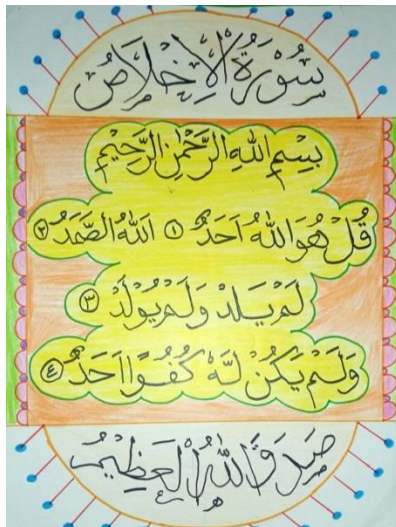 سُوْرَةُ الْاِخْلَاصُ
بِسْمِ اللهِ الرَّحْمٰنِ الرَّحِيْمِ
قُلْ هُوَ اللهُ اَحَدٌ ١ اَللهُ الصَّمَدُ ٢
لَمْ يَلِدْ وَلَمْ يُوْلَدْ ٣
وَلَمْ يَكُنْ لَّهٗ كُفُوًا اَحَدٌ ٤
صَدَقَ اللهُ الْعَظِيْمُ